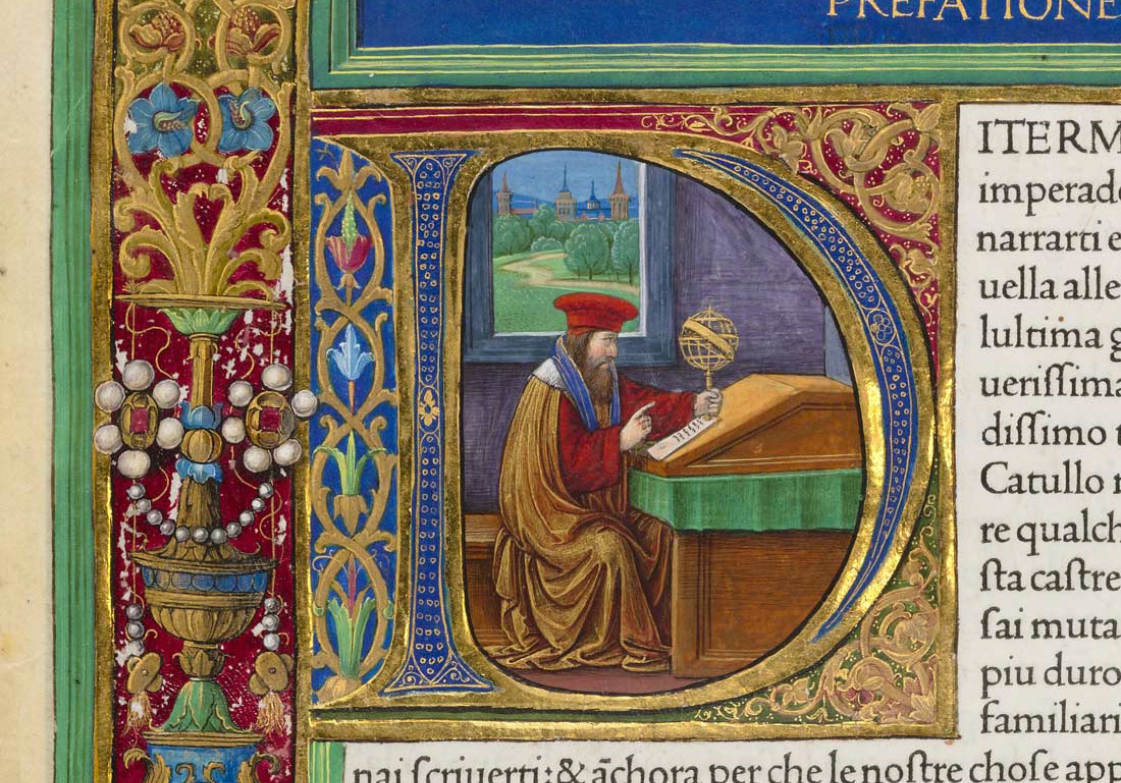 PREFATIONE
D
ITERM
imperado
narrarti e
uella alle
lultima g
ueriſſima
diſſimo t
Catullo n
re qualch
ſta caſtre
ſai muta
piu duro
familiari
nai ſcriuerti:& āchora per che le noſtre choſe app